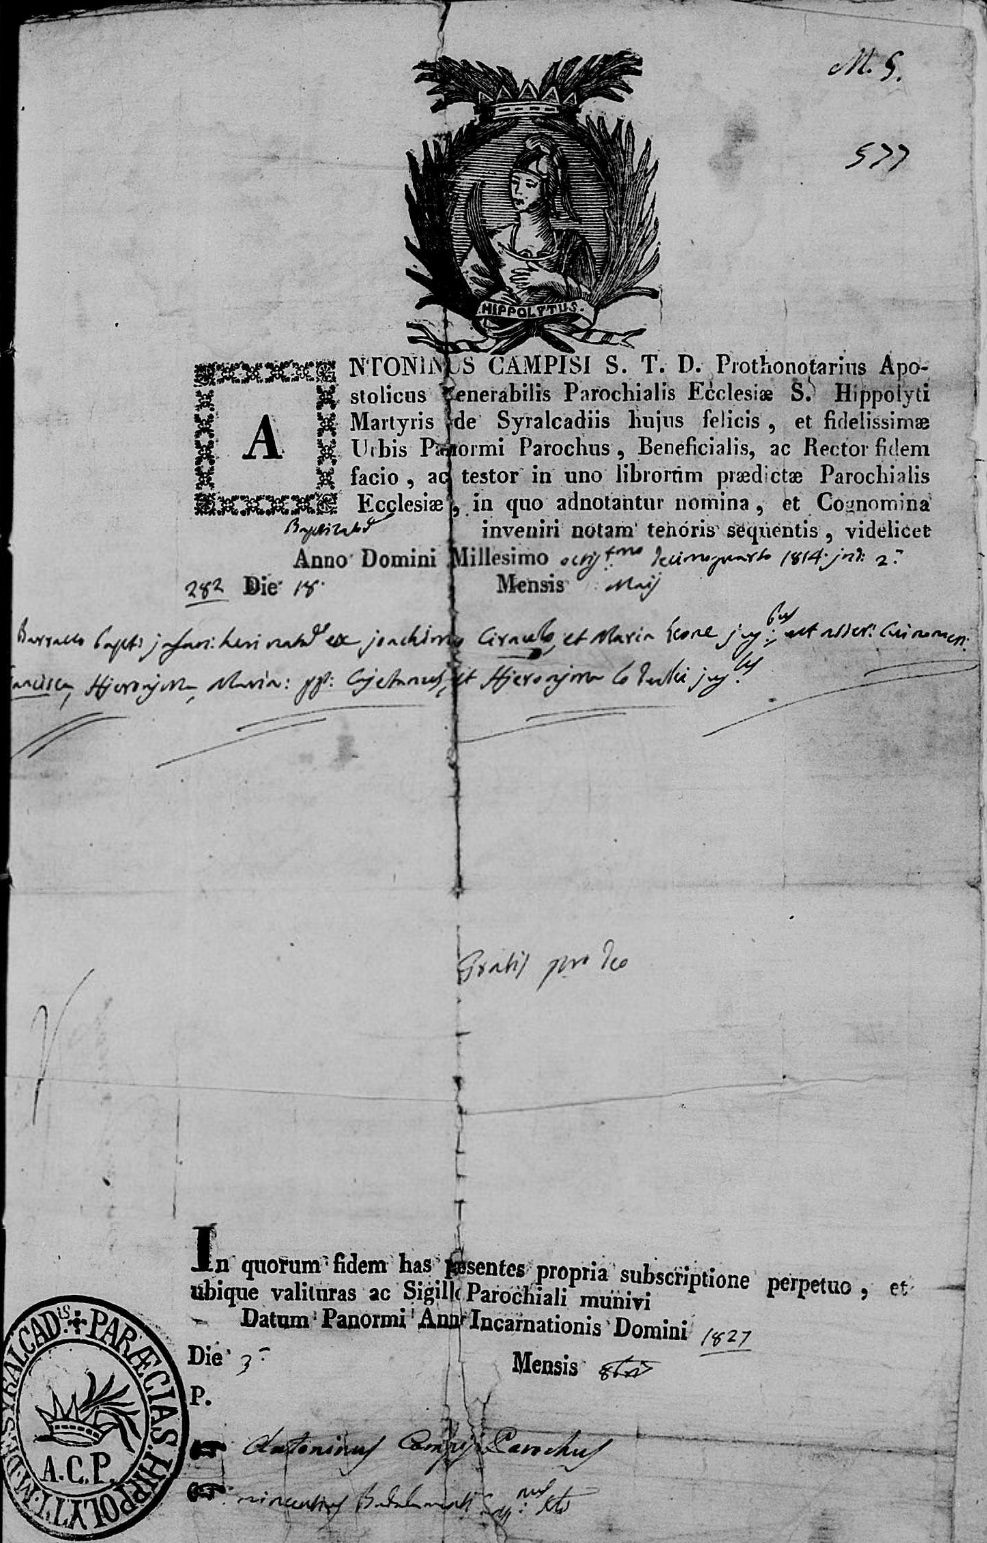 M. G.
577
HIPPOLYTUS.
ANTONINUS CAMPISI S. T. D. Prothonotarius Apo-
stolicus Venerabilis Parochialis Ecclesiæ S. Hippolyti
Martyris de Syralcadiis hujus felicis, et fidelissimæ
Urbis Panormi Parochus, Beneficialis, ac Rector fidem
facio, ac testor in uno librorum prædictæ Parochialis
Ecclesiæ, in quo adnotantur nomina, et Cognomina
inveniri notam tenoris sequentis, videlicet
Anno Domini Millesimo decimoquarto 1814. ind: 2.
282 Die 18 Mensis Maij
et Maria Leone jug: cui nomen:
Francisca, Hjeronyma, Maria: pp: Cajetanus, et Hjeronyma
Gratis pro Deo
In quorum fidem has præsentes propria subscriptione perpetuo, et
ubique valituras ac Sigillo Parochiali munivi
Datum Panormi Anno Incarnationis Domini 1827
Die 3 Mensis 8bris
P.
Antoninus Campisi Parochus
Vincentius
PARÆCIAS. HIPPOLYTI. M. DE. SYRALCADIS.
A.C.P.